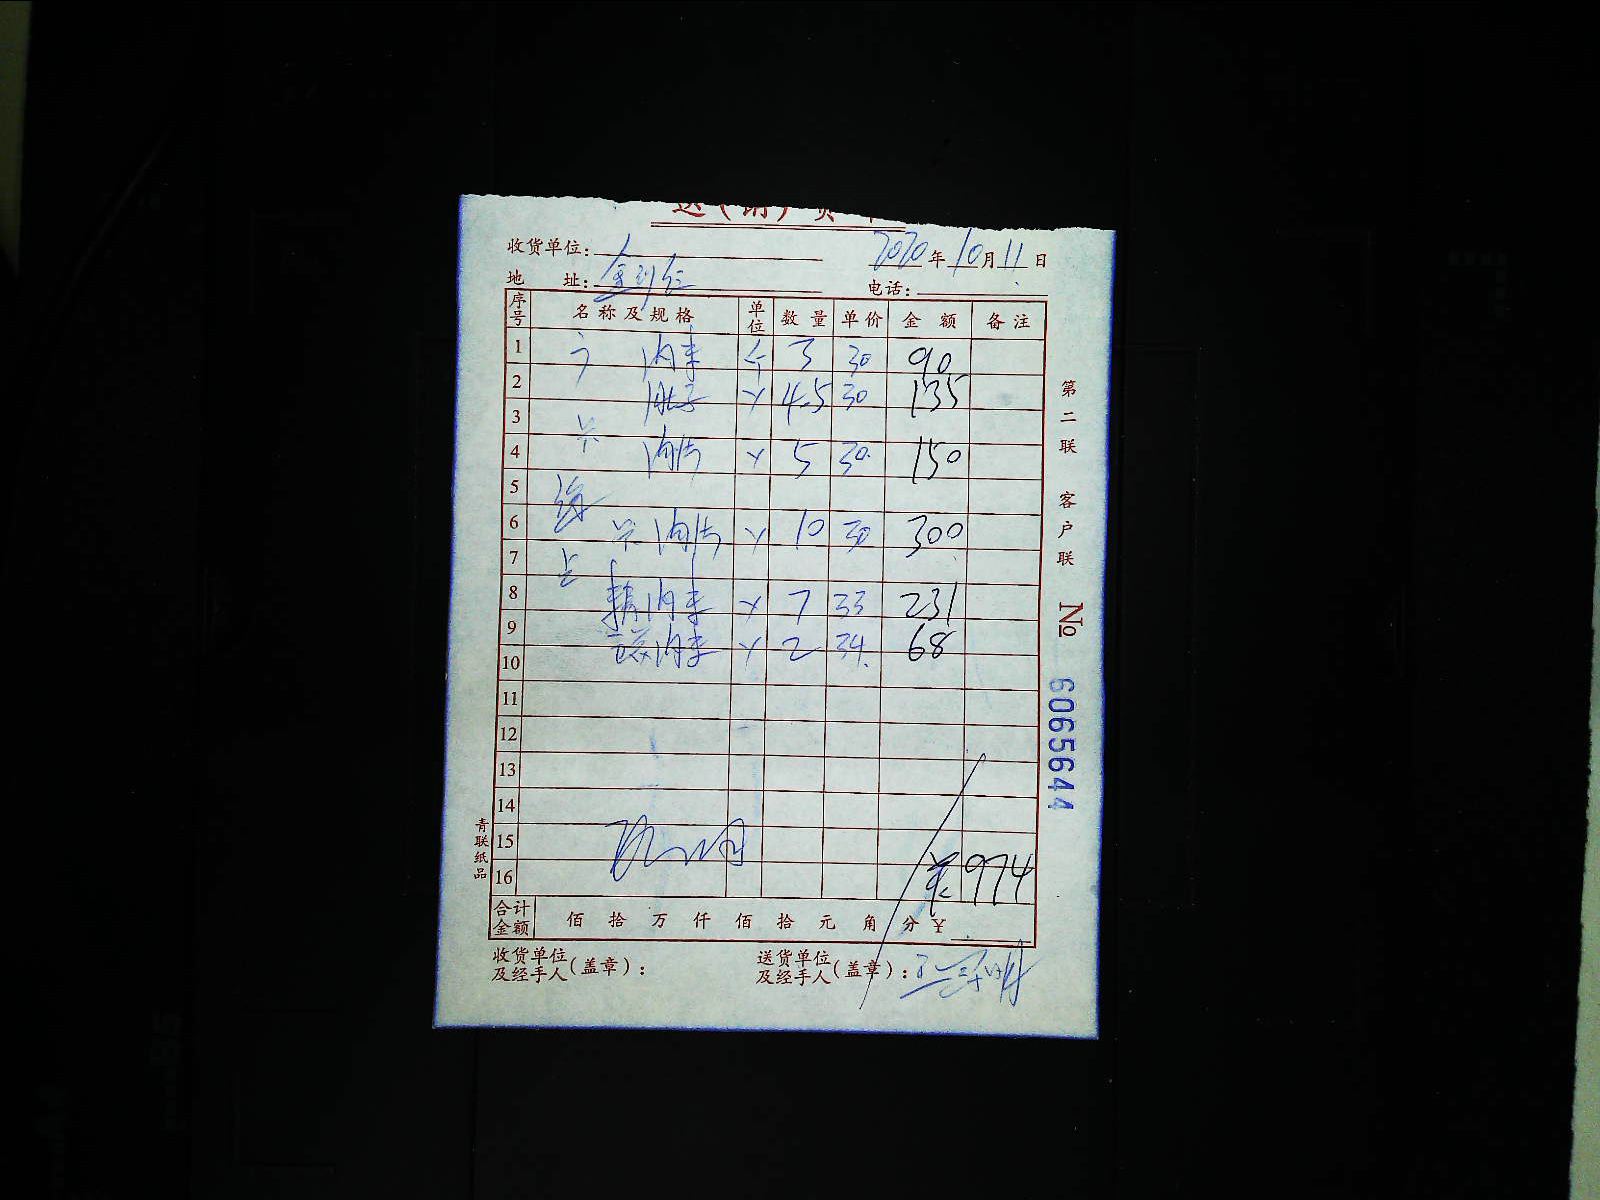 送（销）货单
收货单位： 2020年10月11日
地 址： 电话：
序号 名称及规格 单位 数量 单价 金额 备注
1 肉末 3 30 90
2 肚子 4.5 30 135
3
4 肉片 5 30 150
5
6 肉片 10 30 300
7
8 精肉末 7 33 231
9 肉末 2 34 68
10
11
12
13
14
15
16 974
合计金额 佰 拾 万 仟 佰 拾 元 角 分 ¥
收货单位及经手人（盖章）： 送货单位及经手人（盖章）：
第二联 客户联
№ 6065644
青联纸品